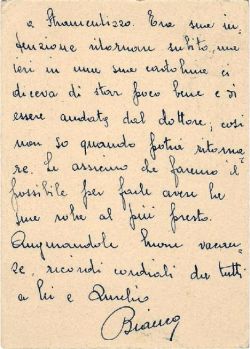 a Stramentizzo. Era sua in-
tenzione ritornare subito, ma
ieri in una sua cartolina ci
diceva di star poco bene e di
essere andata dal dottore; così
non so quando potrà ritorna-
re. Le assicuro che faremo il
possibile per farle avere le
sue robe al più presto.
Augurandole buone vacan-
ze, ricordi cordiali da tutti
a Lei e Duilio
Bianca